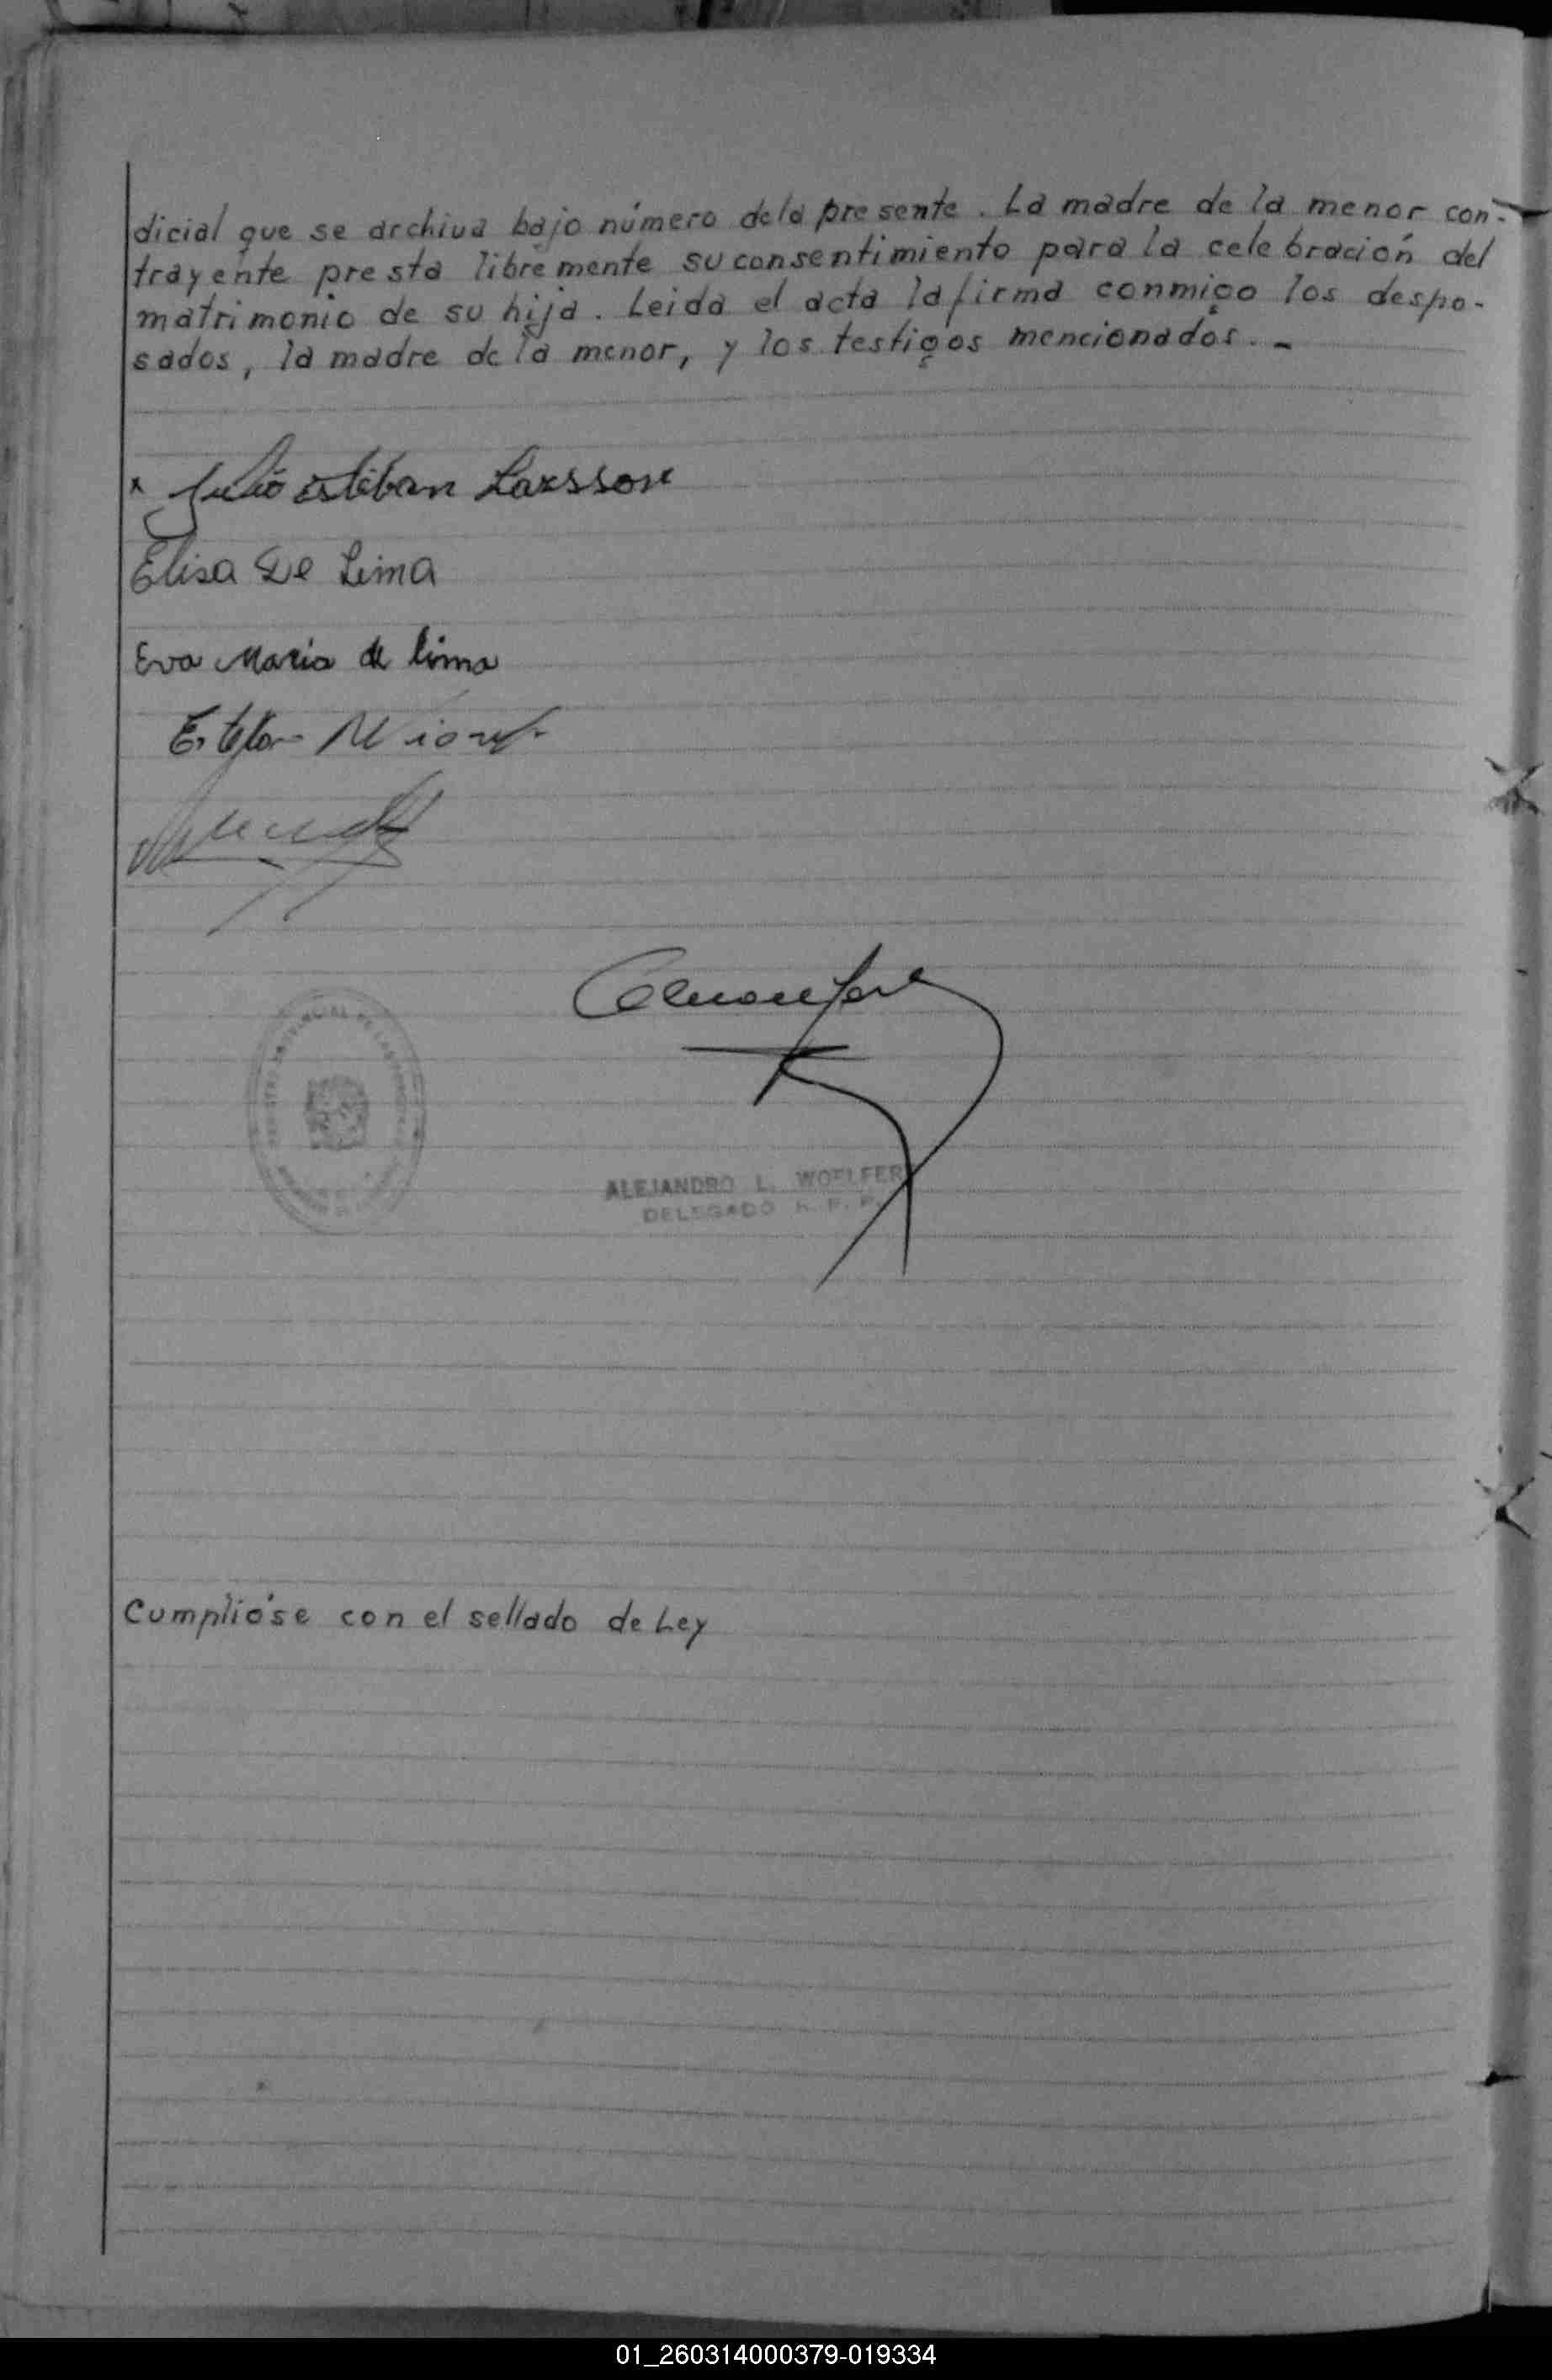 dicial que se archiva bajo número dela presente. La madre de la menor con-
trayente presta libremente su consentimiento para la celebración del
matrimonio de su hija. Leida el acta la firma conmigo los despo-
sados, la madre de la menor, y los testigos mencionados. -
x Julio Esteban Larsson
Elisa De Lima
Eva Maria de lima
ALEJANDRO L. WOELFER
DELEGADO R. P. P.
Cumplióse con el sellado de Ley
01_260314000379-019334